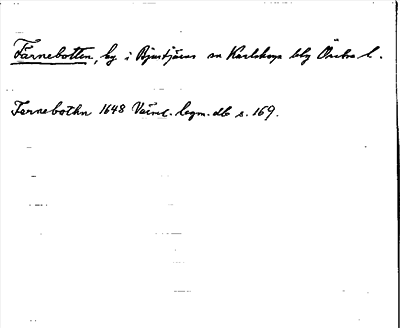 Färnebotten, by i Bjurtjärns sn Karlskoga bbg Örebro l.
Fernebothn 1648 Värml. bergm. db s. 169.